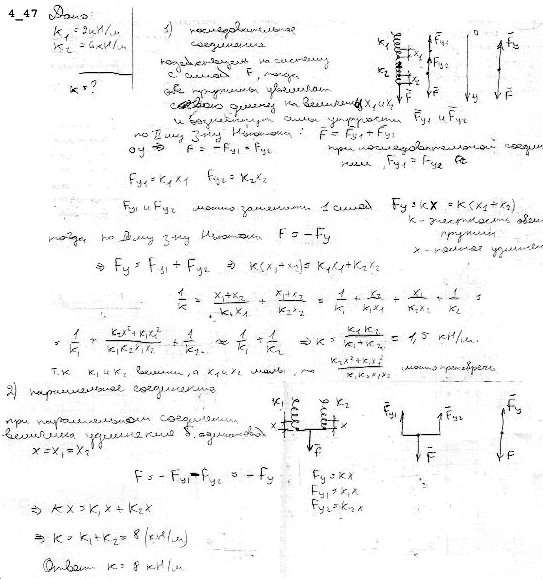 4_47 Дано:
K₁ = 2кН/м
K₂ = 6кН/м
K = ?
1) последовательное
соединение
подействуем на систему
с силой F, тогда
две пружины увеличат
свою длину на величины x₁ и x₂
и возникнут силы упругости F̄у₁ и F̄у₂
по II му з-ну Ньютона: F̄ = F̄у₁ + F̄у₂
оу ⇒ F = -Fу₁ = Fу₂
при последовательной соедине
нии, Fу₁ = Fу₂
Fу₁ = K₁x₁ Fу₂ = K₂x₂
Fу₁ и Fу₂ можно заменить 1 силой Fу = Kx = K(x₁+x₂)
K - жесткость
пружин
x - полное удлинение
тогда по II му з-ну Ньютона F = -Fу
⇒ Fу = Fу₁ + Fу₂ ⇒ K(x₁+x₂) = K₁x₁ + K₂x₂
1/K = (x₁+x₂)/(K₁x₁) + (x₁+x₂)/(K₂x₂) = 1/K₁ + x₂/(K₁x₁) + x₁/(K₂x₂) + 1/K₂ =
= 1/K₁ + (K₂x²+K₁x₁²)/(K₁K₂x₁x₂) + 1/K₂ ≈ 1/K₁ + 1/K₂ ⇒ K = K₁K₂/(K₁+K₂) = 1,5 кН/м.
т.к K₁ и K₂ велики, а x₁ и x₂ малы, то (K₂x²+K₁x₁²)/(K₁K₂x₁x₂) можно пренебречь
K₁ x₁ K₂ x₂ F̄ F̄у₁ F̄у₂ F̄ 0 y F̄у F̄
2) параллельное соединение
при параллельном соединении
величина удлинения б. одинаковой
x = x₁ = x₂
K₁ K₂ x x F̄
F̄у₁ F̄у₂ F̄
F̄у F̄
F = -Fу₁ - Fу₂ = -Fу
Fу = Kx
Fу₁ = K₁x
Fу₂ = K₂x
⇒ Kx = K₁x + K₂x
⇒ K = K₁ + K₂ = 8 (кН/м)
Ответ K = 8 кН/м